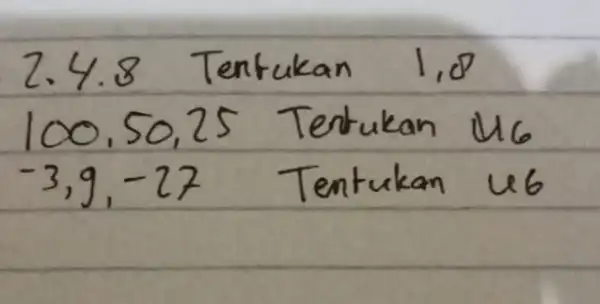 2.4.8 Tentukan 1,8
100,50,25 Tentukan U6
-3,9,-27 Tentukan u6